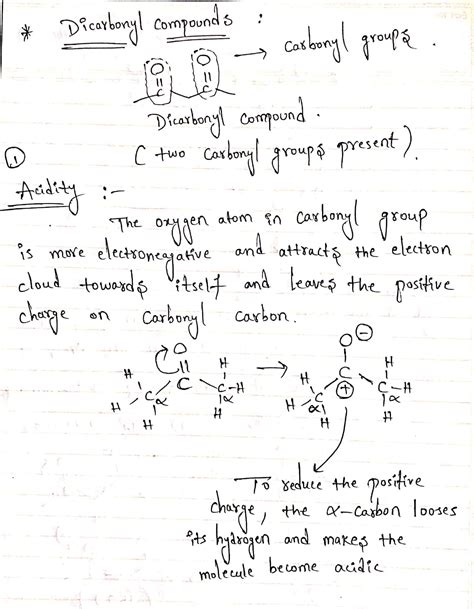 * Dicarbonyl Compounds :
O O → Carbonyl groups.
C C
Dicarbonyl Compound.
( two Carbonyl groups present).
1
Acidity :-
The oxygen atom in Carbonyl group
is more electronegative and attracts the electron
cloud towards itself and leaves the positive
charge on Carbonyl Carbon.
O → O ⊖
H C H H C ⊕ H
H - C α C - H H - C α C - H
H α H H α H
To reduce the positive
charge, the α-Carbon looses
its hydrogen and makes the
molecule become acidic